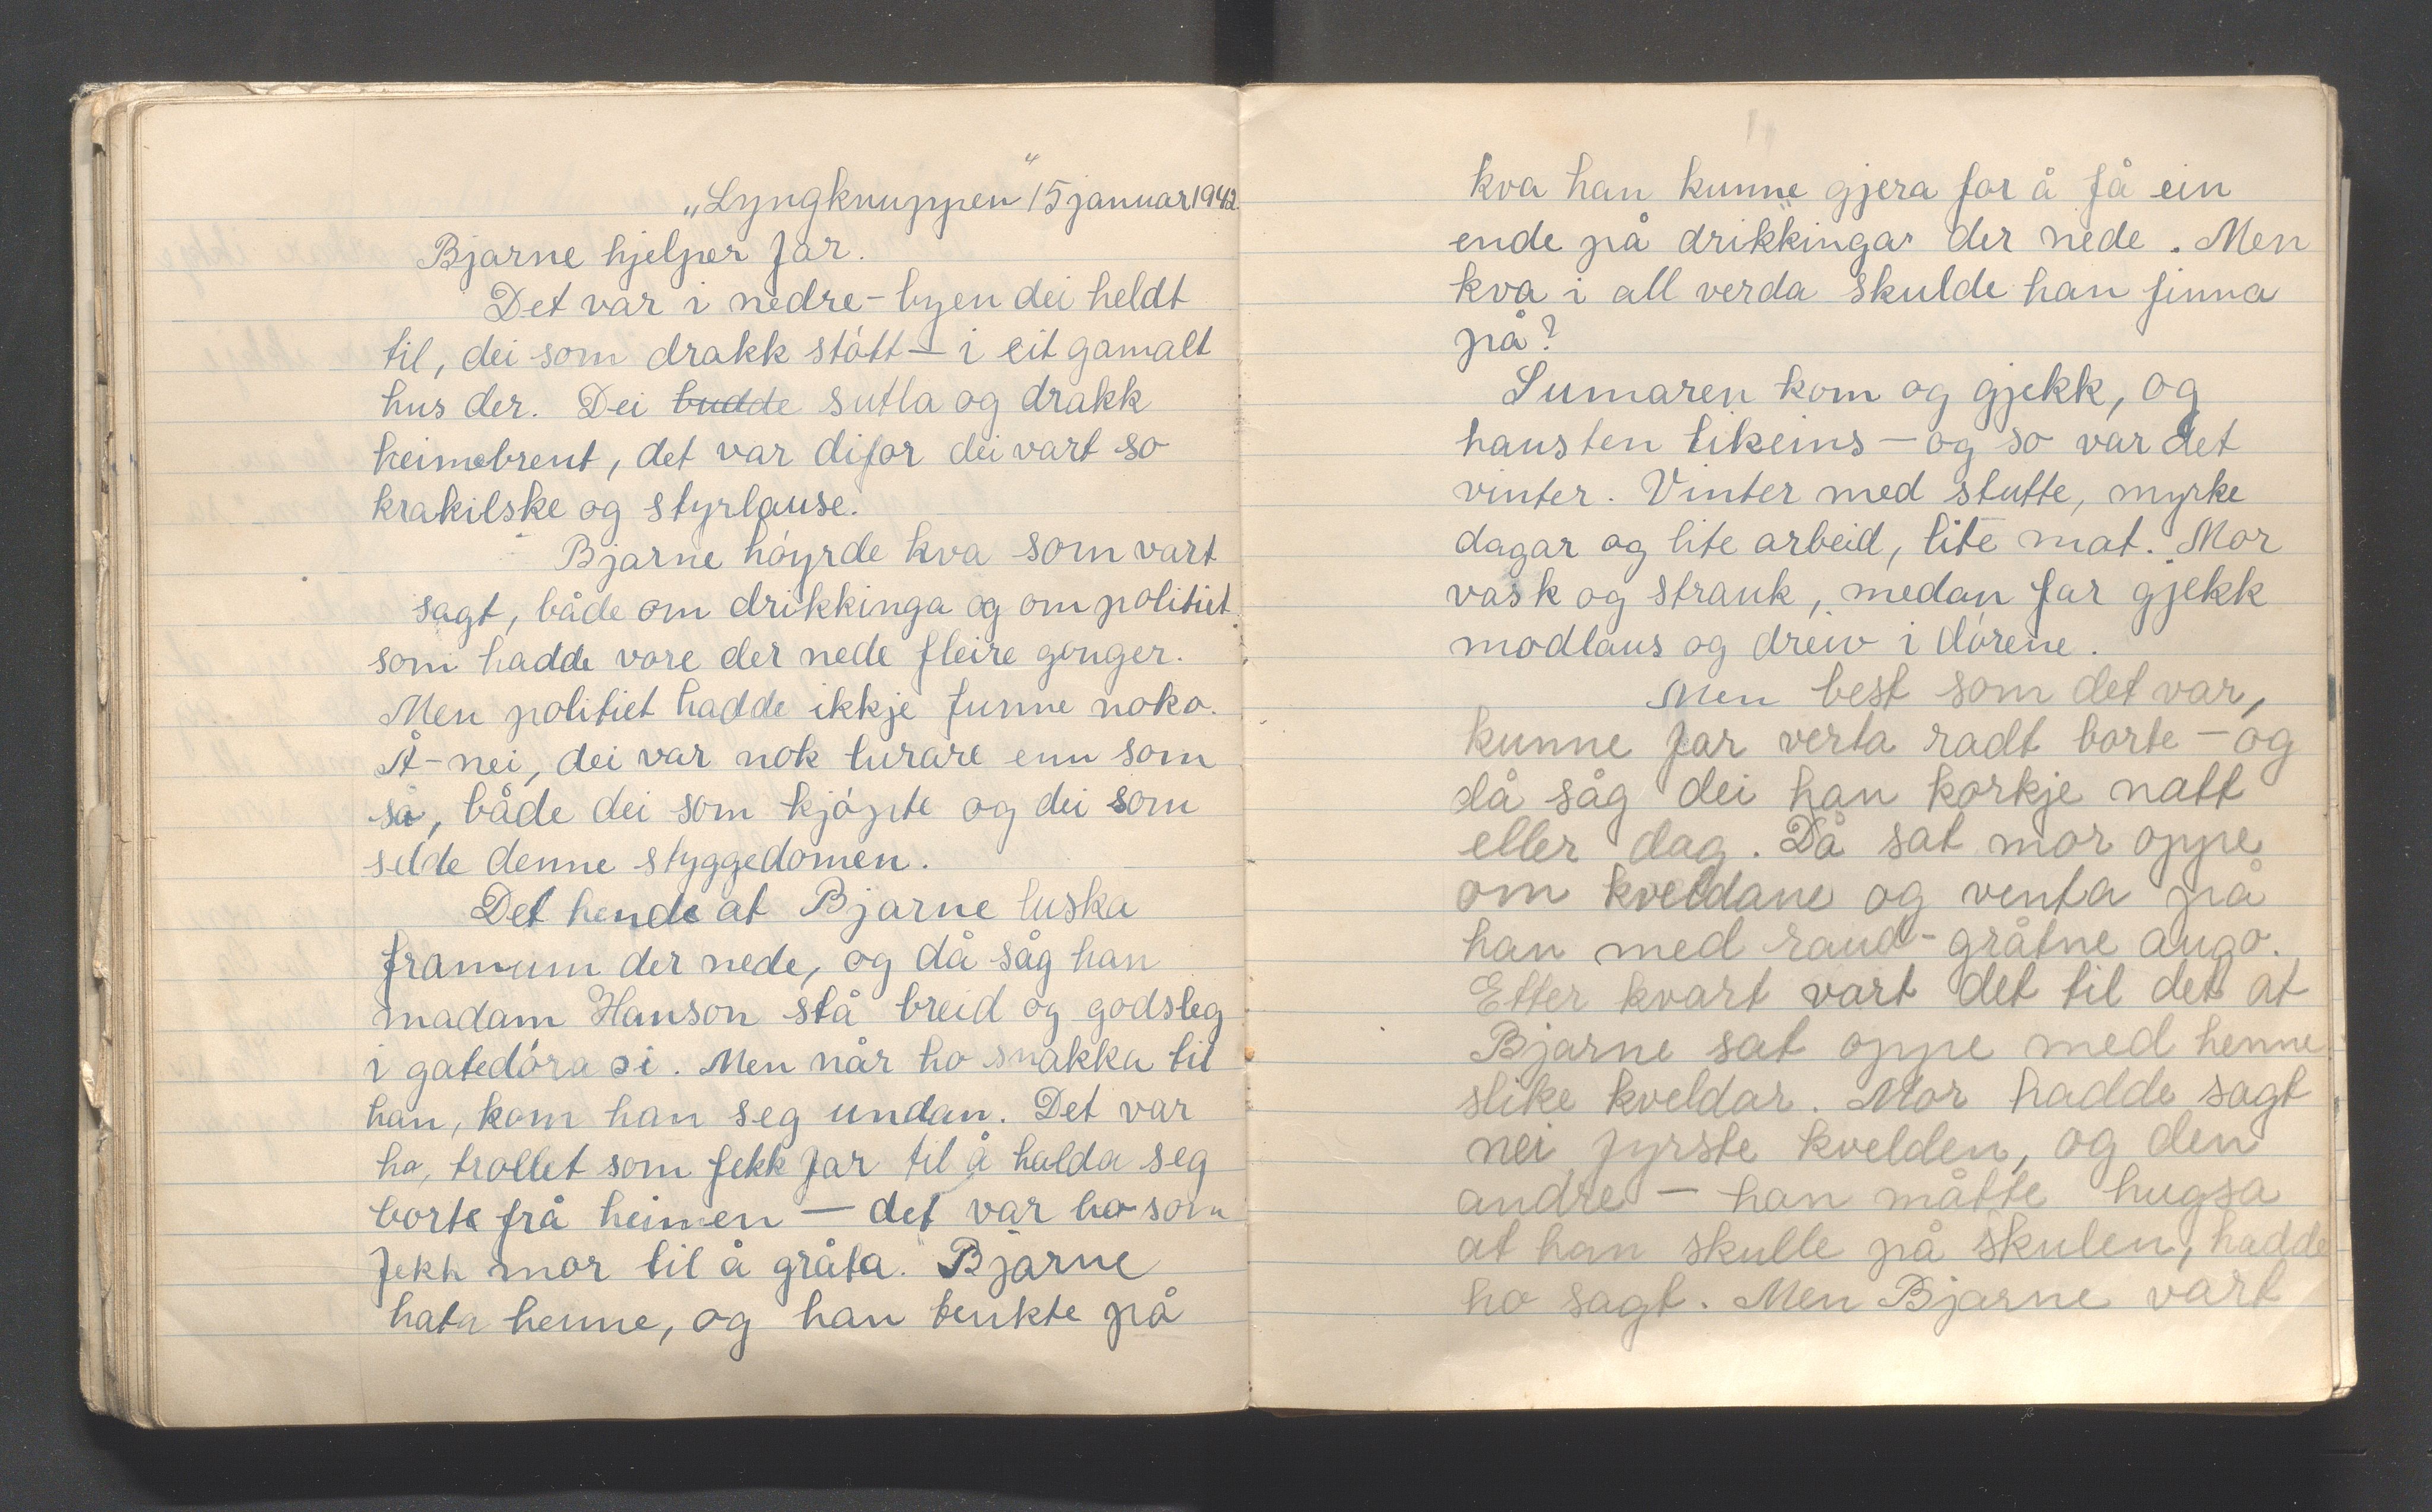 „Lyngknuppen" 15 januar 1942.
Bjarne hjelper far.
Det var i nedre-byen dei heldt
til, dei som drakk støtt – i eit gamalt
hus der. Dei budde sutla og drakk
heimebrent, det var difor dei vart so
krakilske og styrlause.
Bjarne høyrde kva som vart
sagt, både om drikkinga og om politiet
som hadde vore der nede fleire gonger.
Men politiet hadde ikkje funne noko.
Å-nei, dei var nok lurare enn som
så, både dei som kjøpte og dei som
selde denne styggedomen.
Det hende at Bjarne luska
framum der nede, og då såg han
madam Hanson stå breid og godsleg
i gatedøra si. Men når ho snakka til
han, kom han seg undan. Det var
ho, trollet som fekk far til å halda seg
borte frå heimen – det var ho som
fekk mor til å gråta. Bjarne
hata henne, og han tenkte på
kva han kunne gjera for å få ein
ende på drikkingar der nede. Men
kva i all verda skulde han finna
på?
Sumaren kom og gjekk, og
hausten likeins – og so var det
vinter. Vinter med stutte, myrke
dagar og lite arbeid, lite mat. Mor
vask og strauk, medan far gjekk
modlaus og dreiv i dørene.
Men best som det var,
kunne far verta radt borte – og
då såg dei han korkje natt
eller dag. Då sat mor oppe
om kveldane og venta på
han med raud-gråtne augo.
Etter kvart vart det til det at
Bjarne sat oppe med henne
slike kveldar. Mor hadde sagt
nei fyrste kvelden, og den
andre – han måtte hugsa
at han skulle på skulen, hadde
ho sagt. Men Bjarne vart